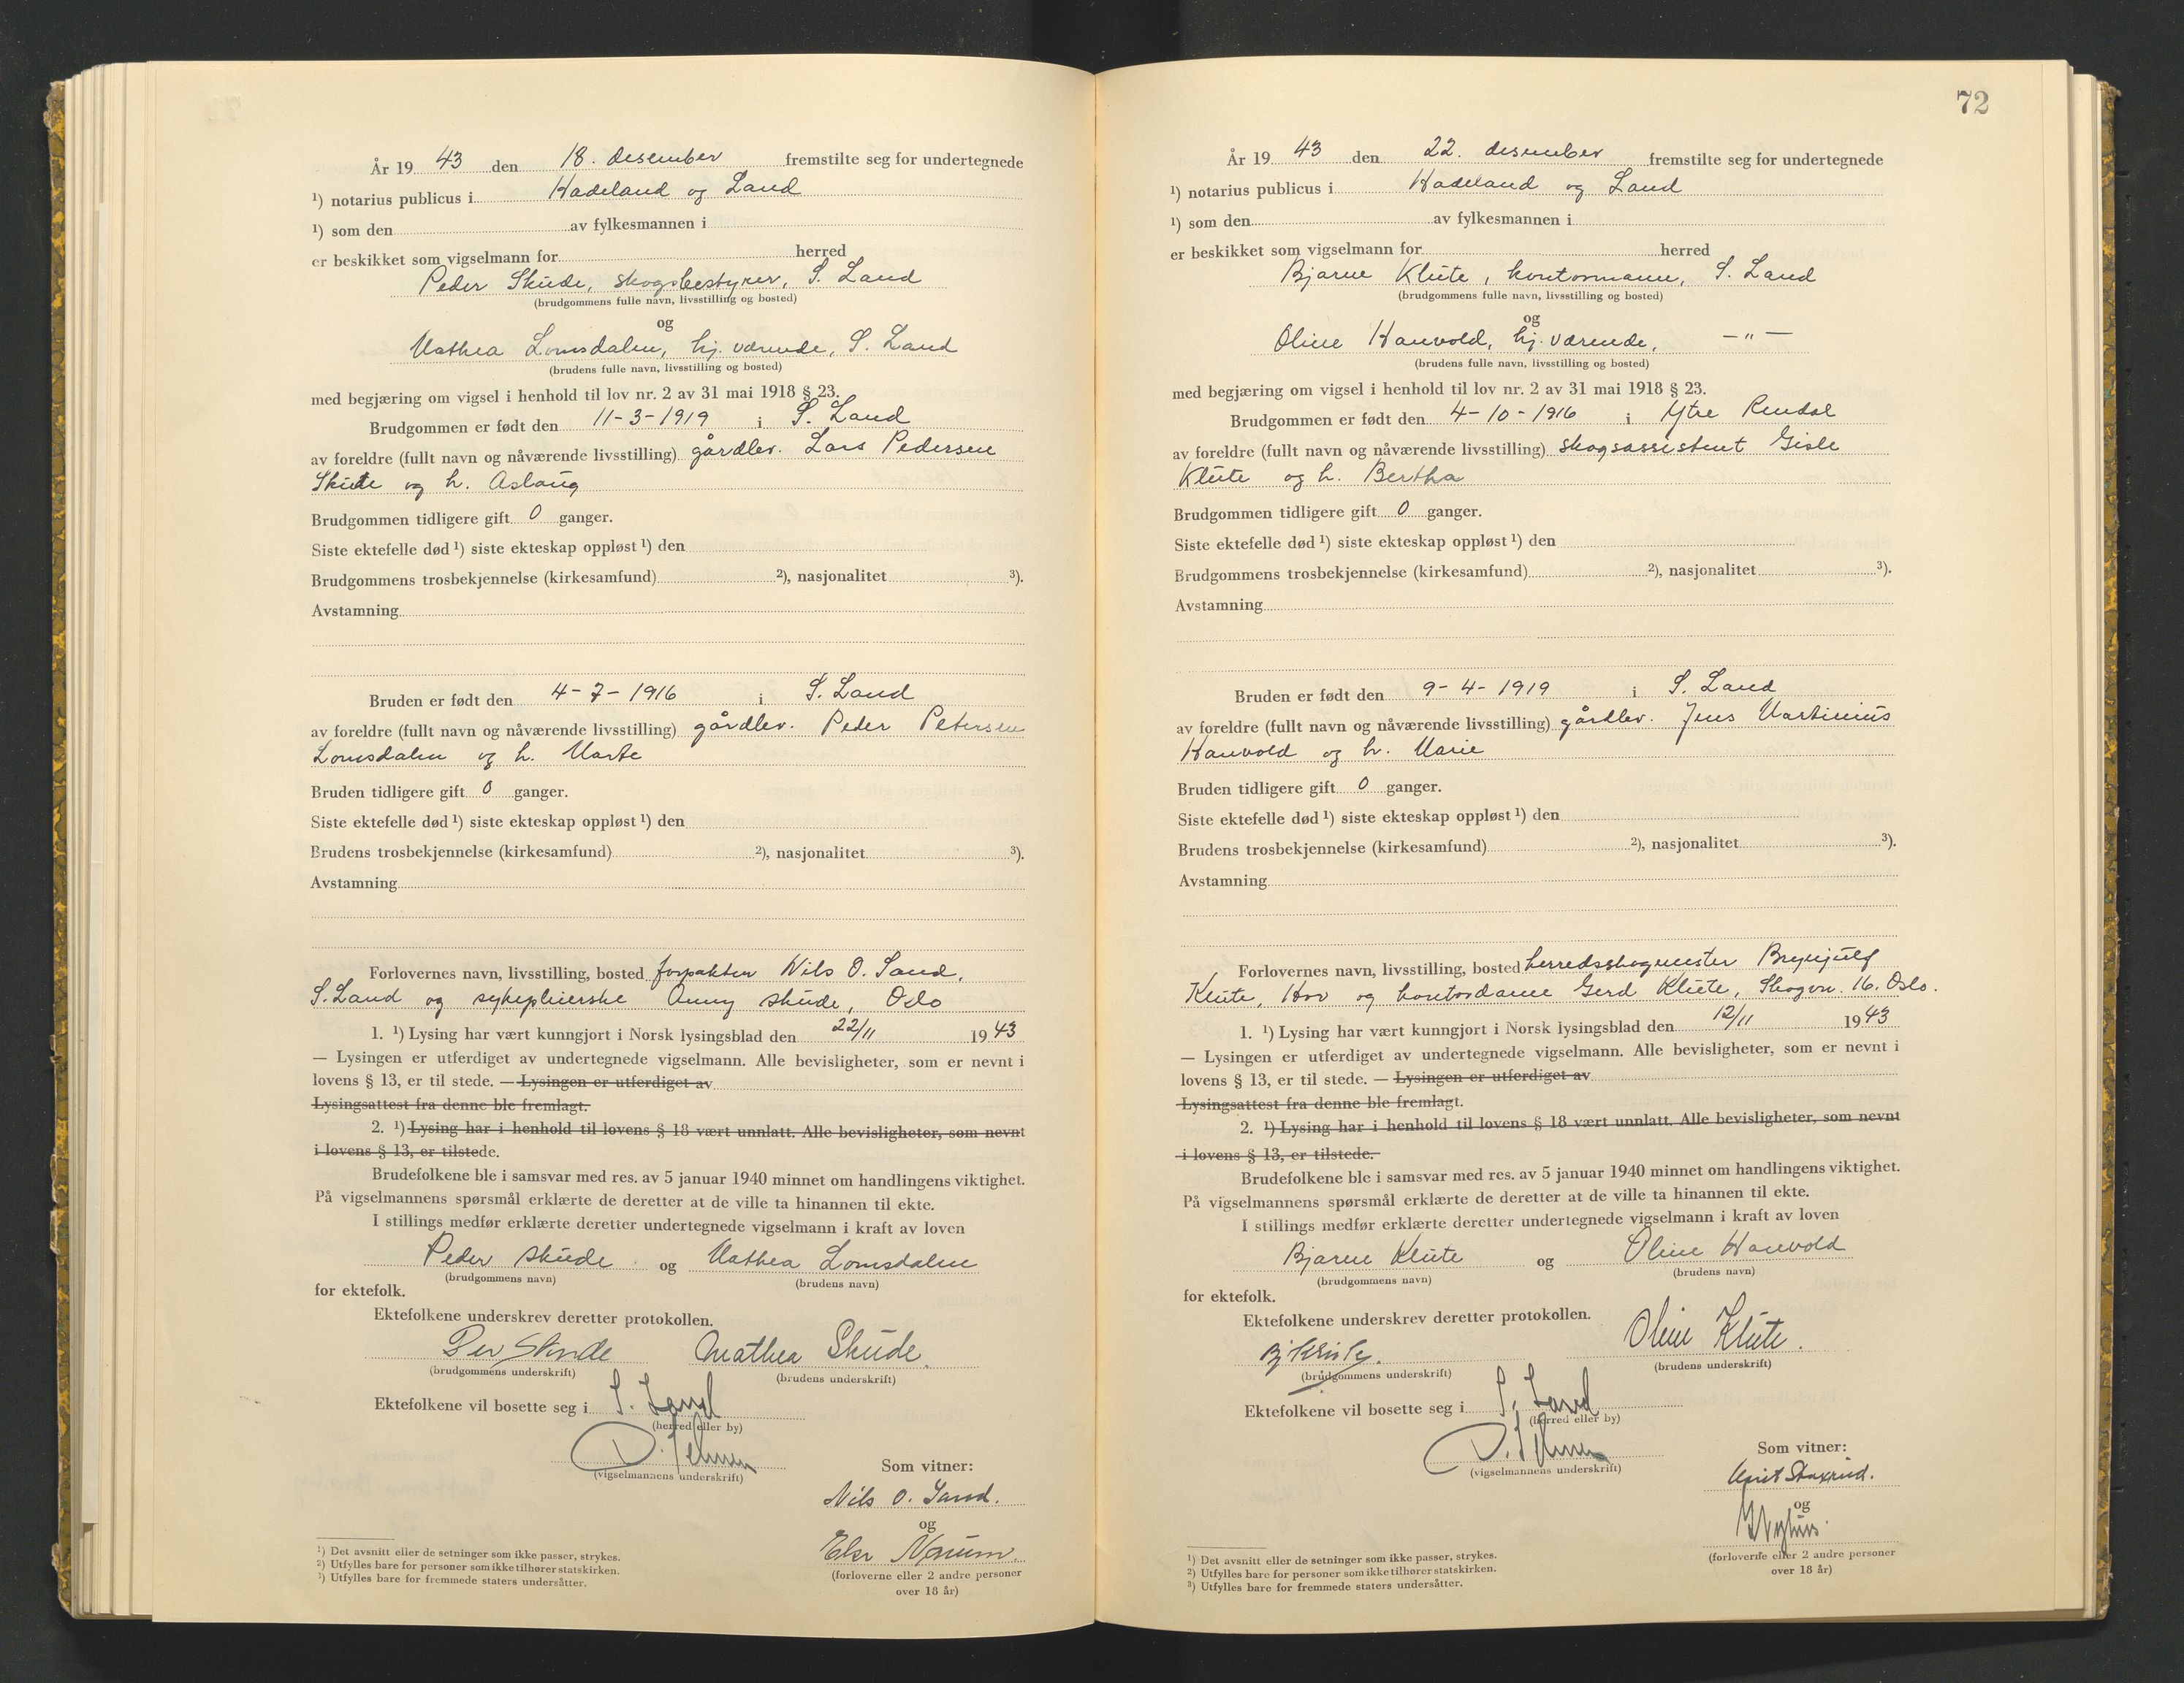 År 19 43 den 18. desember fremstilte seg for undertegnede
¹) notarius publicus i Hadeland og Land
¹) som den av fylkesmannen i
er beskikket som vigselmann for herred
Peder Skude, skogsbestyrer, S. Land
(brudgommens fulle navn, livsstilling og bosted)
og
Mathea Lomsdalen, hj. værende, S. Land
(brudens fulle navn, livsstilling og bosted)
med begjæring om vigsel i henhold til lov nr. 2 av 31 mai 1918 § 23.
Brudgommen er født den 11-3-1919 i S. Land
av foreldre (fullt navn og nåværende livsstilling) gårdbr. Lars Pedersen
Skude og h. Aslaug
Brudgommen tidligere gift 0 ganger.
Siste ektefelle død ¹) siste ekteskap oppløst ¹) den
Brudgommens trosbekjennelse (kirkesamfund) ²), nasjonalitet ³).
Avstamning
Bruden er født den 4-7-1916 i S. Land
av foreldre (fullt navn og nåværende livsstilling) gårdbr. Peder Petersen
Lomsdalen og h. Marte
Bruden tidligere gift 0 ganger.
Siste ektefelle død ¹) siste ekteskap oppløst ¹) den
Brudens trosbekjennelse (kirkesamfund) ²), nasjonalitet ³).
Avstamning
Forlovernes navn, livsstilling, bosted forpakter Nils O. Sand,
S. Land og sykepleierske Anny Skude, Oslo
1. ¹) Lysing har vært kunngjort i Norsk lysingsblad den 22/11 19 43
— Lysingen er utferdiget av undertegnede vigselmann. Alle bevisligheter, som er nevnt i
lovens § 13, er til stede. — Lysingen er utferdiget av
Lysingsattest fra denne ble fremlagt.
2. ¹) Lysing har i henhold til lovens § 18 vært unnlatt. Alle bevisligheter, som nevnt
i lovens § 13, er tilstede.
Brudefolkene ble i samsvar med res. av 5 januar 1940 minnet om handlingens viktighet.
På vigselmannens spørsmål erklærte de deretter at de ville ta hinannen til ekte.
I stillings medfør erklærte deretter undertegnede vigselmann i kraft av loven
Peder Skude og Mathea Lomsdalen
(brudgommens navn) (brudens navn)
for ektefolk.
Ektefolkene underskrev deretter protokollen.
Per Skude Mathea Skude.
(brudgommens underskrift) (brudens underskrift)
Ektefolkene vil bosette seg i S. Land
(herred eller by)
(vigselmannens underskrift)
Som vitner:
Nils O. Sand.
og
Else
(forloverne eller 2 andre personer
over 18 år)
¹) Det avsnitt eller de setninger som ikke passer, strykes.
²) Utfylles bare for personer som ikke tilhører statskirken.
³) Utfylles bare for fremmede staters undersåtter.
72
År 19 43 den 22. desember fremstilte seg for undertegnede
¹) notarius publicus i Hadeland og Land
¹) som den av fylkesmannen i
er beskikket som vigselmann for herred
Bjarne Klute, kontormann, S. Land
(brudgommens fulle navn, livsstilling og bosted)
og
Oline Hauvold, hj. værende, — " —
(brudens fulle navn, livsstilling og bosted)
med begjæring om vigsel i henhold til lov nr. 2 av 31 mai 1918 § 23.
Brudgommen er født den 4-10-1916 i Ytre Rendal
av foreldre (fullt navn og nåværende livsstilling) skogsassistent Gisle
Klute og h. Bertha
Brudgommen tidligere gift 0 ganger.
Siste ektefelle død ¹) siste ekteskap oppløst ¹) den
Brudgommens trosbekjennelse (kirkesamfund) ²), nasjonalitet ³).
Avstamning
Bruden er født den 9-4-1919 i S. Land
av foreldre (fullt navn og nåværende livsstilling) gårdbr. Jens Martinius
Hauvold og h. Marie
Bruden tidligere gift 0 ganger.
Siste ektefelle død ¹) siste ekteskap oppløst ¹) den
Brudens trosbekjennelse (kirkesamfund) ²), nasjonalitet ³).
Avstamning
Forlovernes navn, livsstilling, bosted herredsskogmester Brynjulf
Klute, Hov og kontordame Gerd Klute, Skogvn. 16. Oslo.
1. ¹) Lysing har vært kunngjort i Norsk lysingsblad den 12/11 19 43
— Lysingen er utferdiget av undertegnede vigselmann. Alle bevisligheter, som er nevnt i
lovens § 13, er til stede. — Lysingen er utferdiget av
Lysingsattest fra denne ble fremlagt.
2. ¹) Lysing har i henhold til lovens § 18 vært unnlatt. Alle bevisligheter, som nevnt
i lovens § 13, er tilstede.
Brudefolkene ble i samsvar med res. av 5 januar 1940 minnet om handlingens viktighet.
På vigselmannens spørsmål erklærte de deretter at de ville ta hinannen til ekte.
I stillings medfør erklærte deretter undertegnede vigselmann i kraft av loven
Bjarne Klute og Oline Hauvold
(brudgommens navn) (brudens navn)
for ektefolk.
Ektefolkene underskrev deretter protokollen.
Bj. Klute. Oline Klute.
(brudgommens underskrift) (brudens underskrift)
Ektefolkene vil bosette seg i S. Land
(herred eller by)
(vigselmannens underskrift)
Som vitner:
Marit Staxrud.
og
(forloverne eller 2 andre personer
over 18 år)
¹) Det avsnitt eller de setninger som ikke passer, strykes.
²) Utfylles bare for personer som ikke tilhører statskirken.
³) Utfylles bare for fremmede staters undersåtter.